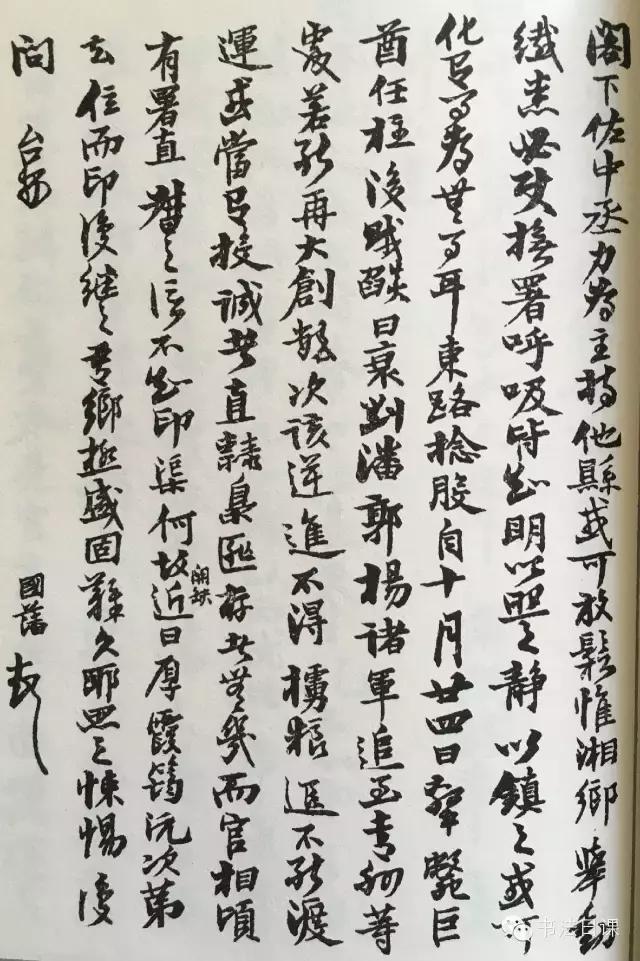 閣下佐中丞力為主持他縣或可放鬆惟湘鄉舉動
纖悉必硋撫署呼吸皆知明以照之靜以鎮之或可
化有事為無事耳東路捻股自十月廿四日擊斃巨
酋任柱後賊燄日衰劉潘郭楊諸軍追至青州等
處若能再大創數次該逆進不得擄糧退不能渡
運或當有投誠者直隸梟匪存者無幾而官相頃
有署直督之信不知印渠何故開缺近日厚霞筠沅次第
去位而印復繼之吾鄉極盛固難久耶思之悚惕復
問 台安 國藩頓
书法日课